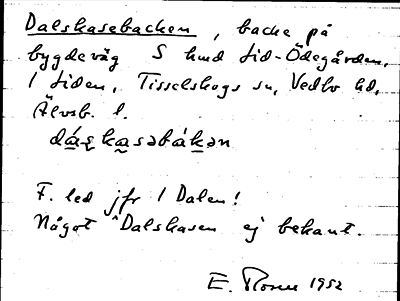 Dalskasebacken, backe på
bygdeväg S hmd Lid-Ödegården,
/ Liden, Tisselskogs sn, Vedbo hd,
Älvsb. l.
F. led jfr / Dalen!
Något *Dalskasen ej bekant.
E. 1952